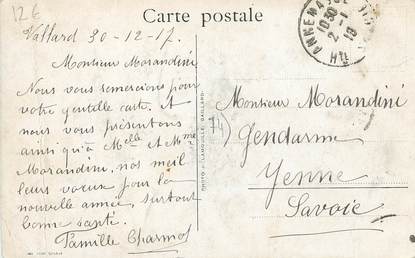 12€
Carte postale
Vallard 30-12-17.
Monsieur Morandini
Nous vous remercions pour
votre gentille carte. Et
nous vous présentons
ainsi qu'à Melle et Mme
Morandini, nos meil
leurs voeux pour la
nouvelle année, surtout
bonne santé.
Famille Charmot
ANNEMASSE
2-1
18
Hte
74)
Monsieur Morandini
Gendarme
Yenne
Savoie